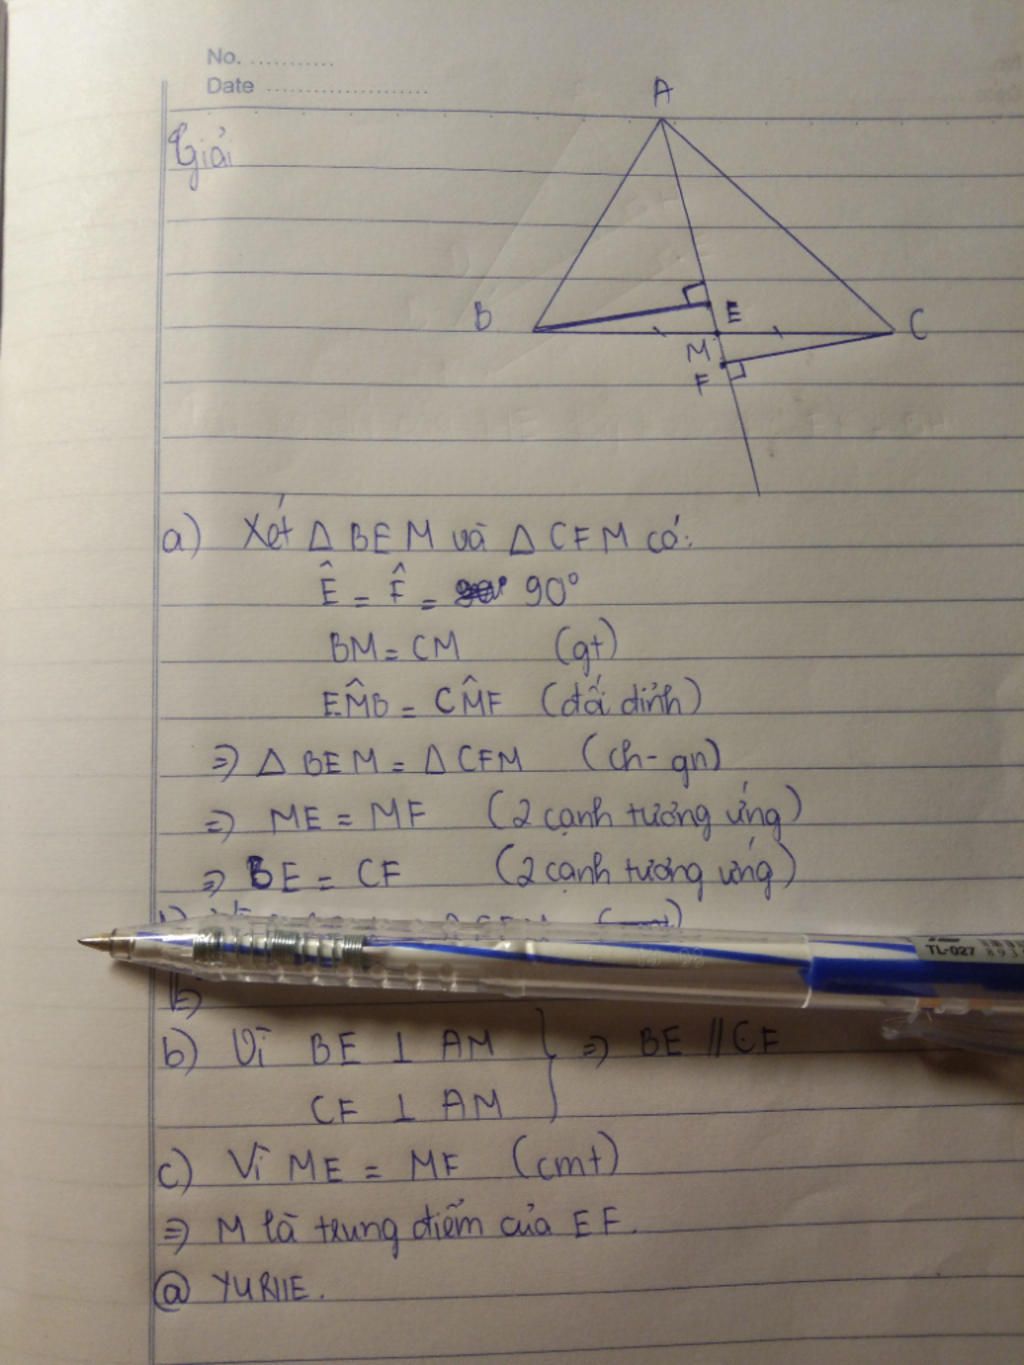 No. ...........
Date .....................
Giải
A
B
E
C
M
F
a) Xét Δ BEM và Δ CFM có:
Ê = F̂ = 90°
BM = CM (gt)
EM̂B = CM̂F (đối đỉnh)
⇒ Δ BEM = Δ CFM (ch-gn)
⇒ ME = MF (2 cạnh tương ứng)
⇒ BE = CF (2 cạnh tương ứng)
TL-027
b) Vì BE ⊥ AM } ⇒ BE // CF
CF ⊥ AM
c) Vì ME = MF (cmt)
⇒ M là trung điểm của EF.
@ YURIIE.